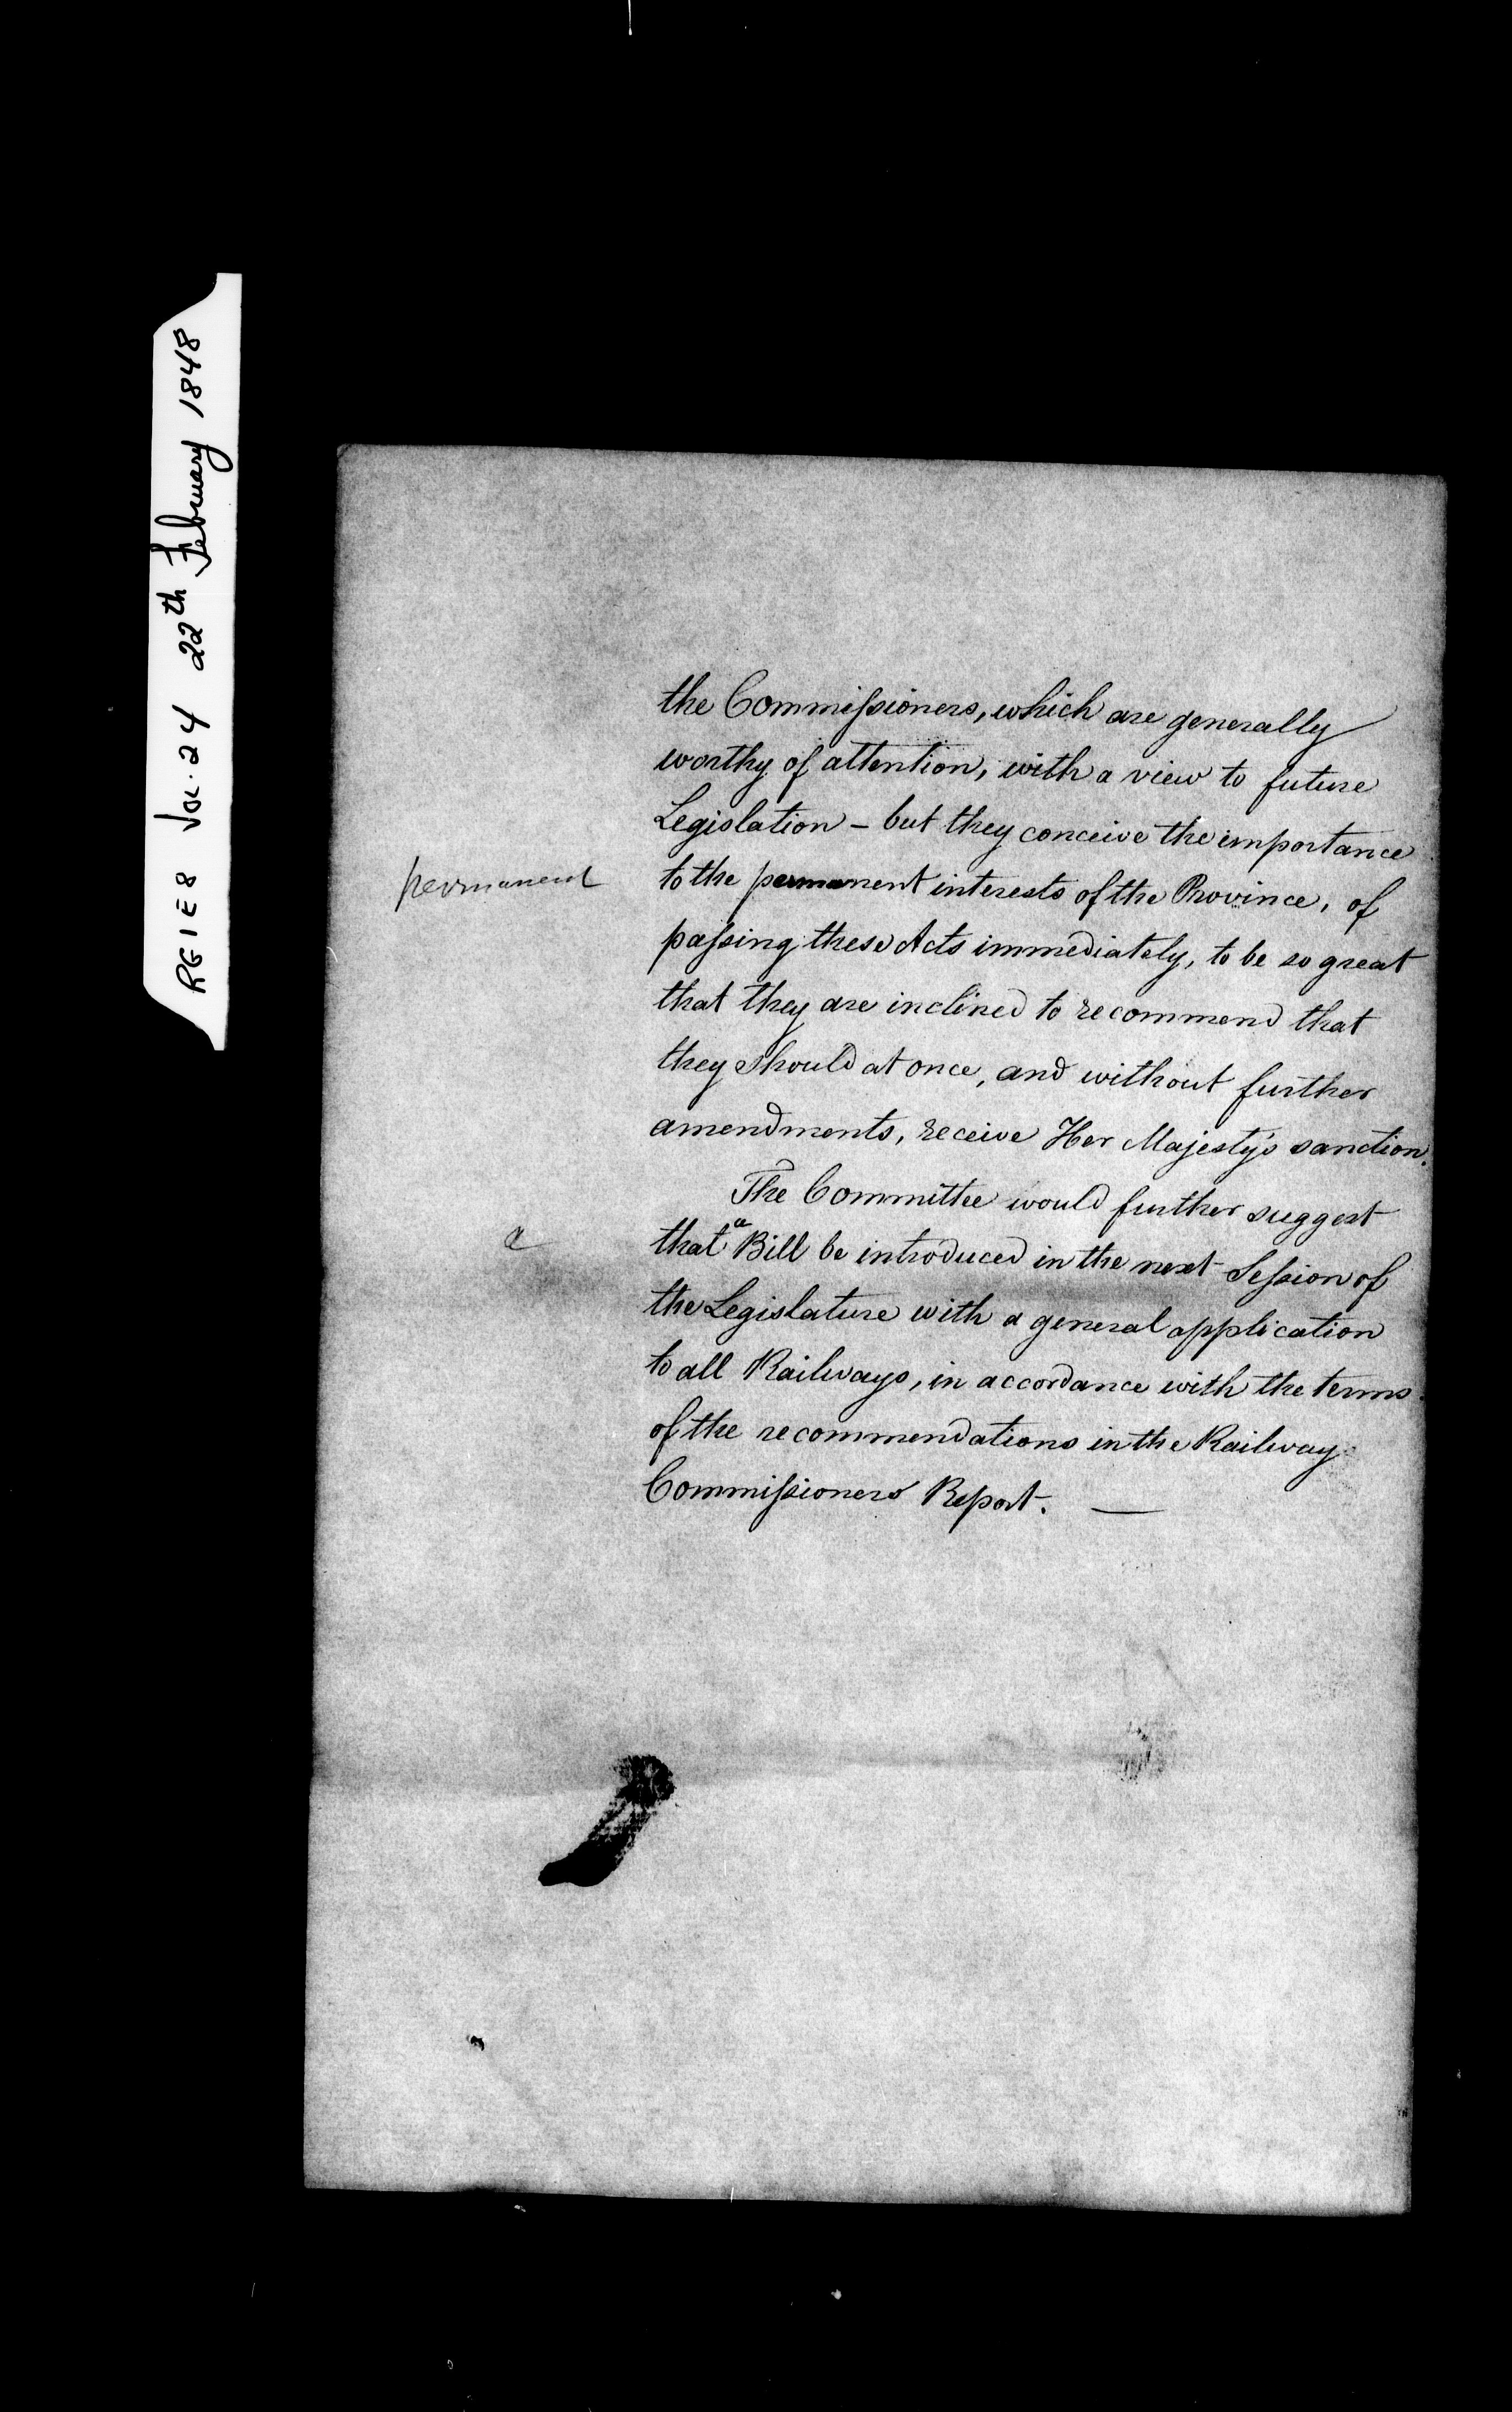 RG1E8 Vol. 24 22th February 1848
the Commissioners, which are generally
worthy of attention, with a view to future
Legislation – but they conceive the importance
permanent
to the permanent interests of the Province, of
passing these Acts immediately, to be so great
that they are inclined to recommend that
they should at once, and without further
amendments, receive Her Majesty's sanction.
The Committee would further suggest
a
that a Bill be introduced in the next Session of
the Legislature with a general application
to all Railways, in accordance with the terms
of the recommendations in the Railway
Commissioners' Report. —